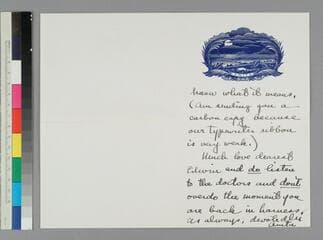 know what it means.
(Am sending you a
carbon copy because
our typewriter ribbon
is very weak.)
Much love dearest
Edwin and do listen
to the doctors and don't
overdo the moment you
are back in harness.
As always, devotedly
Anita